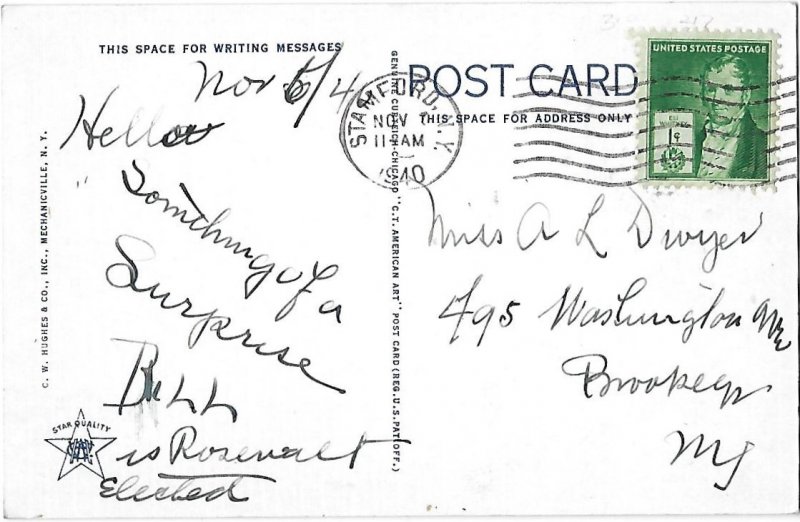 THIS SPACE FOR WRITING MESSAGES
Nov 6/4
Hello
Somthing of a
Surprise
Bill
is Rosevalt
Elected
C. W. HUGHES & CO., INC., MECHANICVILLE, N. Y.
STAR QUALITY
GENUINE CURTEICH-CHICAGO "C.T. AMERICAN ART" POST CARD (REG. U.S. PAT. OFF.)
POST CARD
THIS SPACE FOR ADDRESS ONLY
STAMFORD, N.Y.
NOV
11 AM
1940
UNITED STATES POSTAGE
ELI WHITNEY
1¢
Miss A L Dwyer
495 Washington Ave
Brookeyn
NY